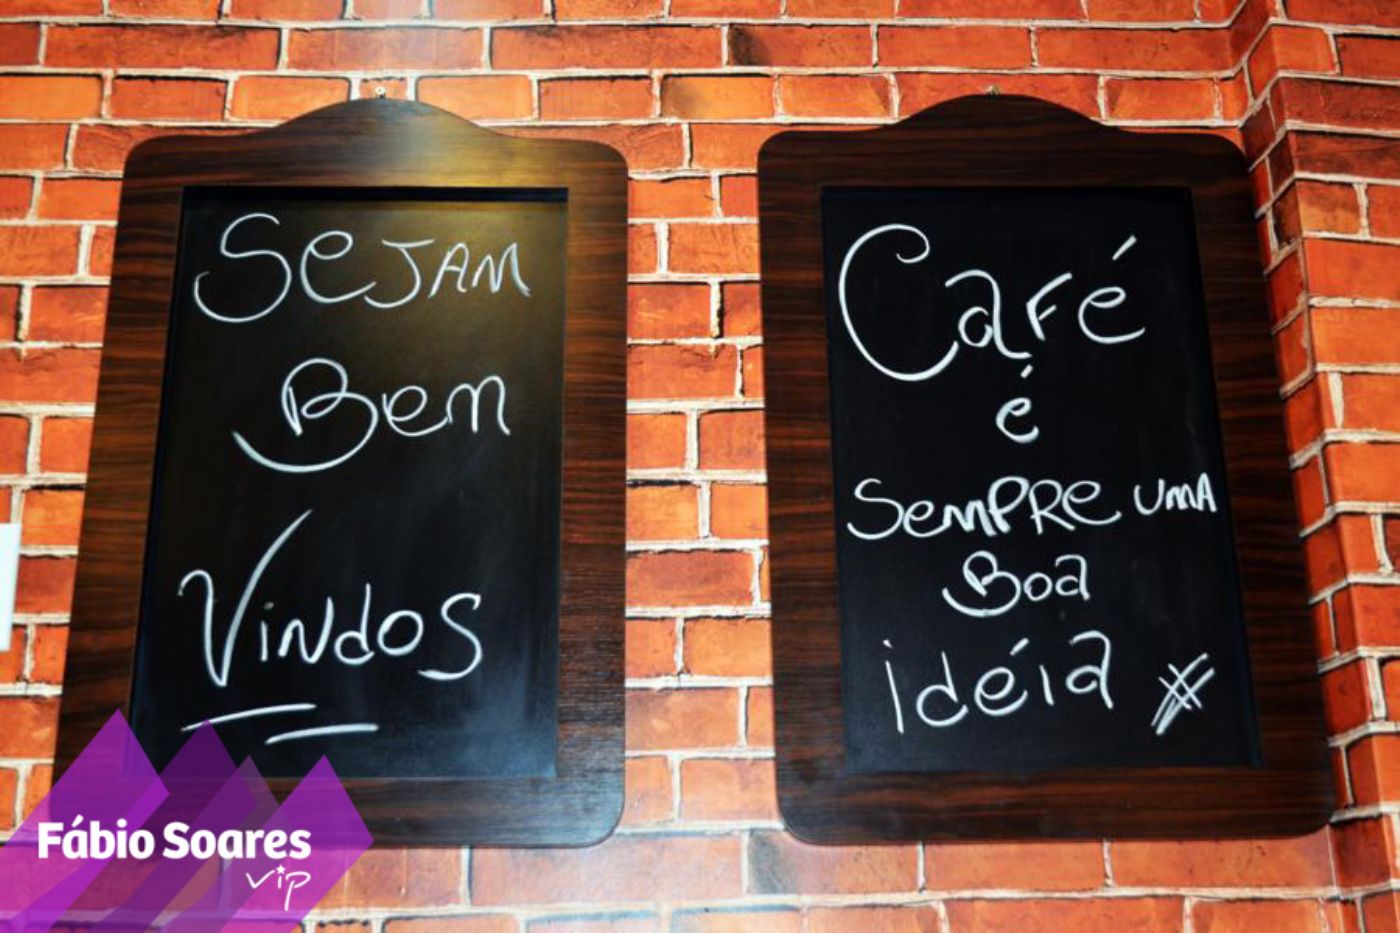 SeJAM
Bem
Vindos
Café
é
SemPRe UMA
Boa
idéia #
Fábio Soares
vip